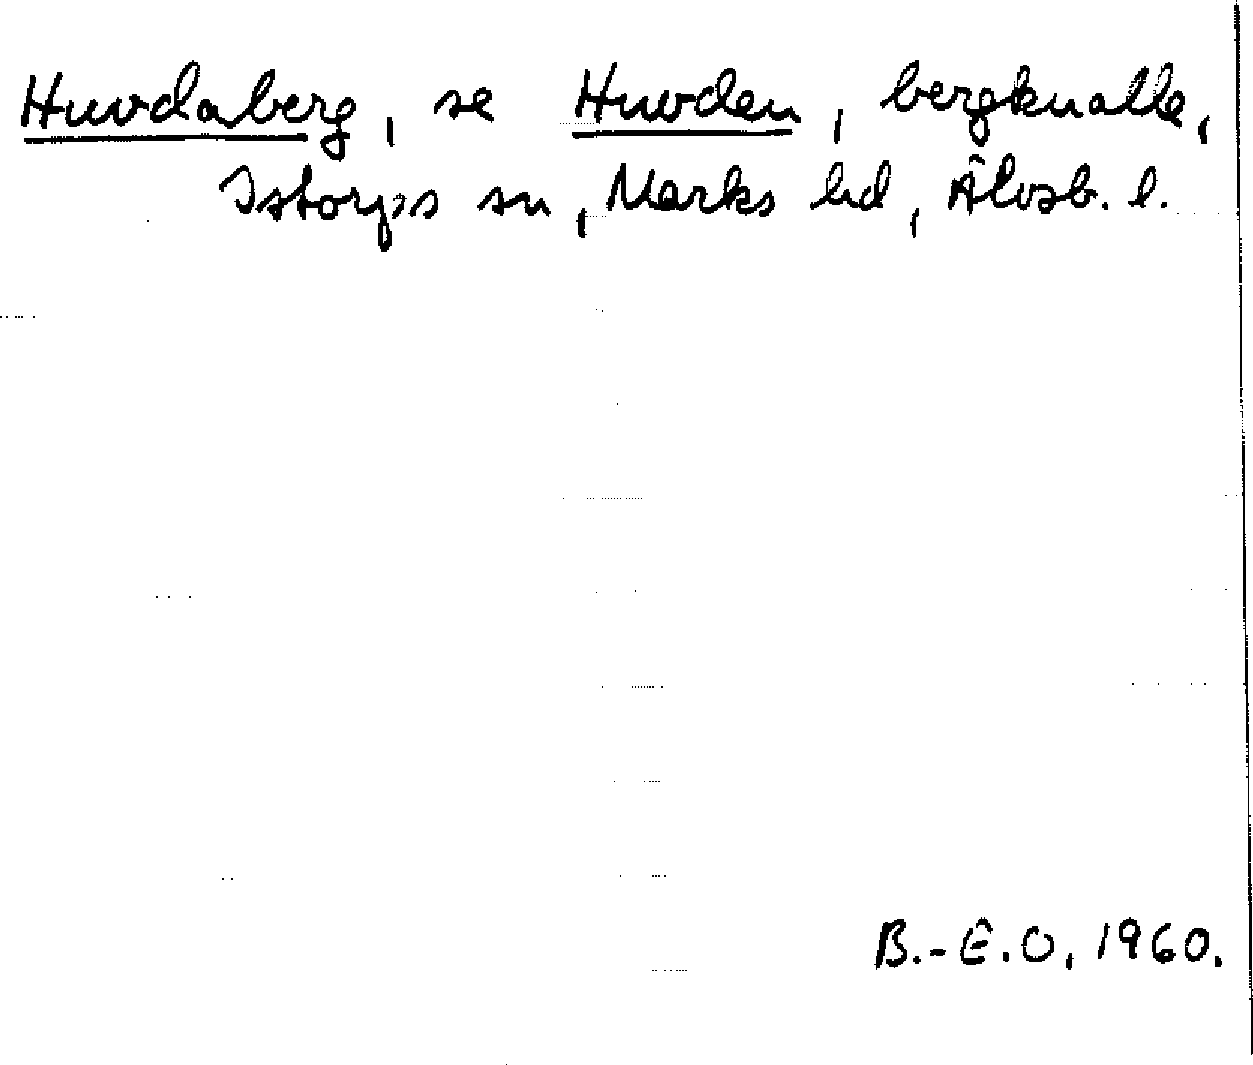 Huvdaberg, se Huvden, bergknalle,
Istorps sn, Marks hd, Älvsb. l.
B.-E.O, 1960.